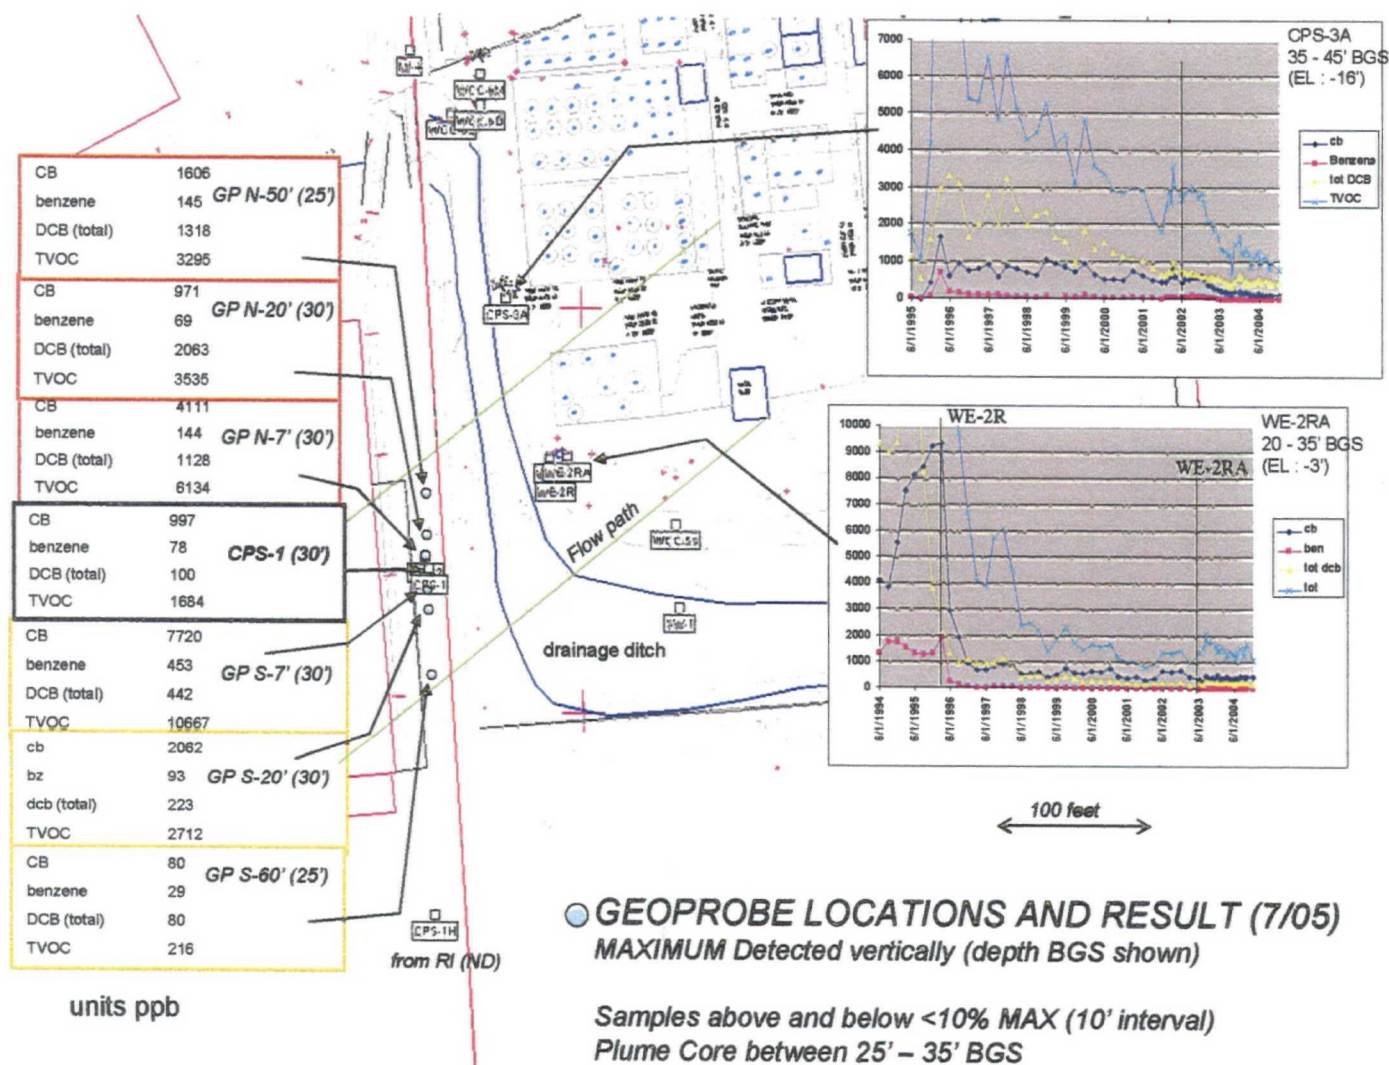 CB 1606
benzene 145
DCB (total) 1318
TVOC 3295
GP N-50' (25')
CB 971
benzene 69
DCB (total) 2063
TVOC 3535
GP N-20' (30')
CB 4111
benzene 144
DCB (total) 1128
TVOC 6134
GP N-7' (30')
CB 997
benzene 78
DCB (total) 100
TVOC 1684
CPS-1 (30')
CB 7720
benzene 453
DCB (total) 442
TVOC 10667
GP S-7' (30')
cb 2062
bz 93
dcb (total) 223
TVOC 2712
GP S-20' (30')
CB 80
benzene 29
DCB (total) 80
TVOC 216
GP S-60' (25')
units ppb
CPS-3A
WE-2RA
WE-2R
CPS-1
CPS-1H
from RI (ND)
Flow path
drainage ditch
CPS-3A
35 - 45' BGS
(EL : -16')
7000
6000
5000
4000
3000
2000
1000
0
6/1/1995
6/1/1996
6/1/1997
6/1/1998
6/1/1999
6/1/2000
6/1/2001
6/1/2002
6/1/2003
6/1/2004
cb
Benzene
tot DCB
TVOC
WE-2R
WE-2RA
WE-2RA
20 - 35' BGS
(EL : -3')
10000
9000
8000
7000
6000
5000
4000
3000
2000
1000
0
6/1/1994
6/1/1995
6/1/1996
6/1/1997
6/1/1998
6/1/1999
6/1/2000
6/1/2001
6/1/2002
6/1/2003
6/1/2004
cb
ben
tot dcb
tot
100 feet
GEOPROBE LOCATIONS AND RESULT (7/05)
MAXIMUM Detected vertically (depth BGS shown)
Samples above and below <10% MAX (10' interval)
Plume Core between 25' – 35' BGS